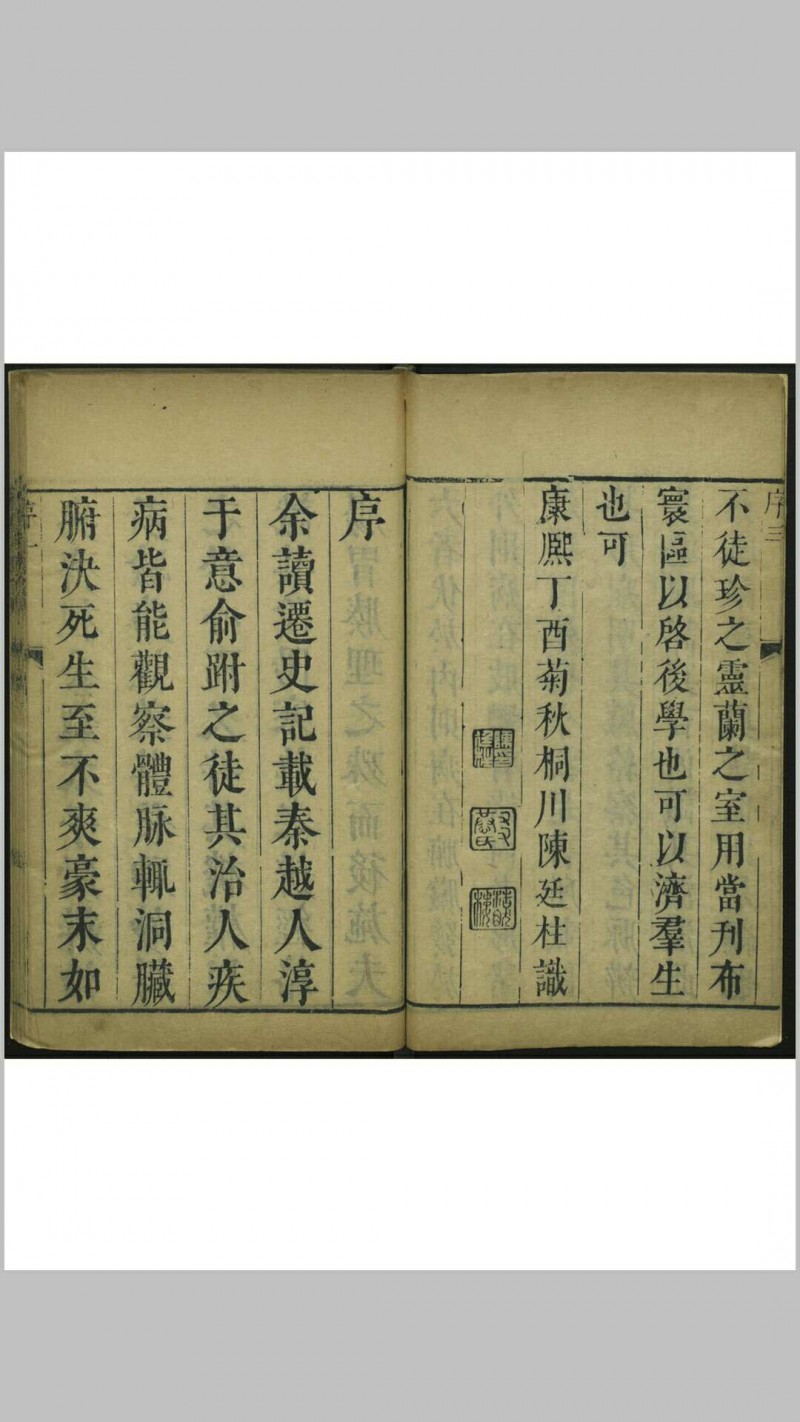 序三
不徒珍之靈蘭之室用當刋布
寰區以啓後學也可以濟羣生
也可
康熙丁酉菊秋桐川陳廷柱識
序
余讀遷史記載秦越人淳
于意俞跗之徒其治人疾
病皆能觀察體脉輒洞臟
腑決死生至不爽豪末如
序一